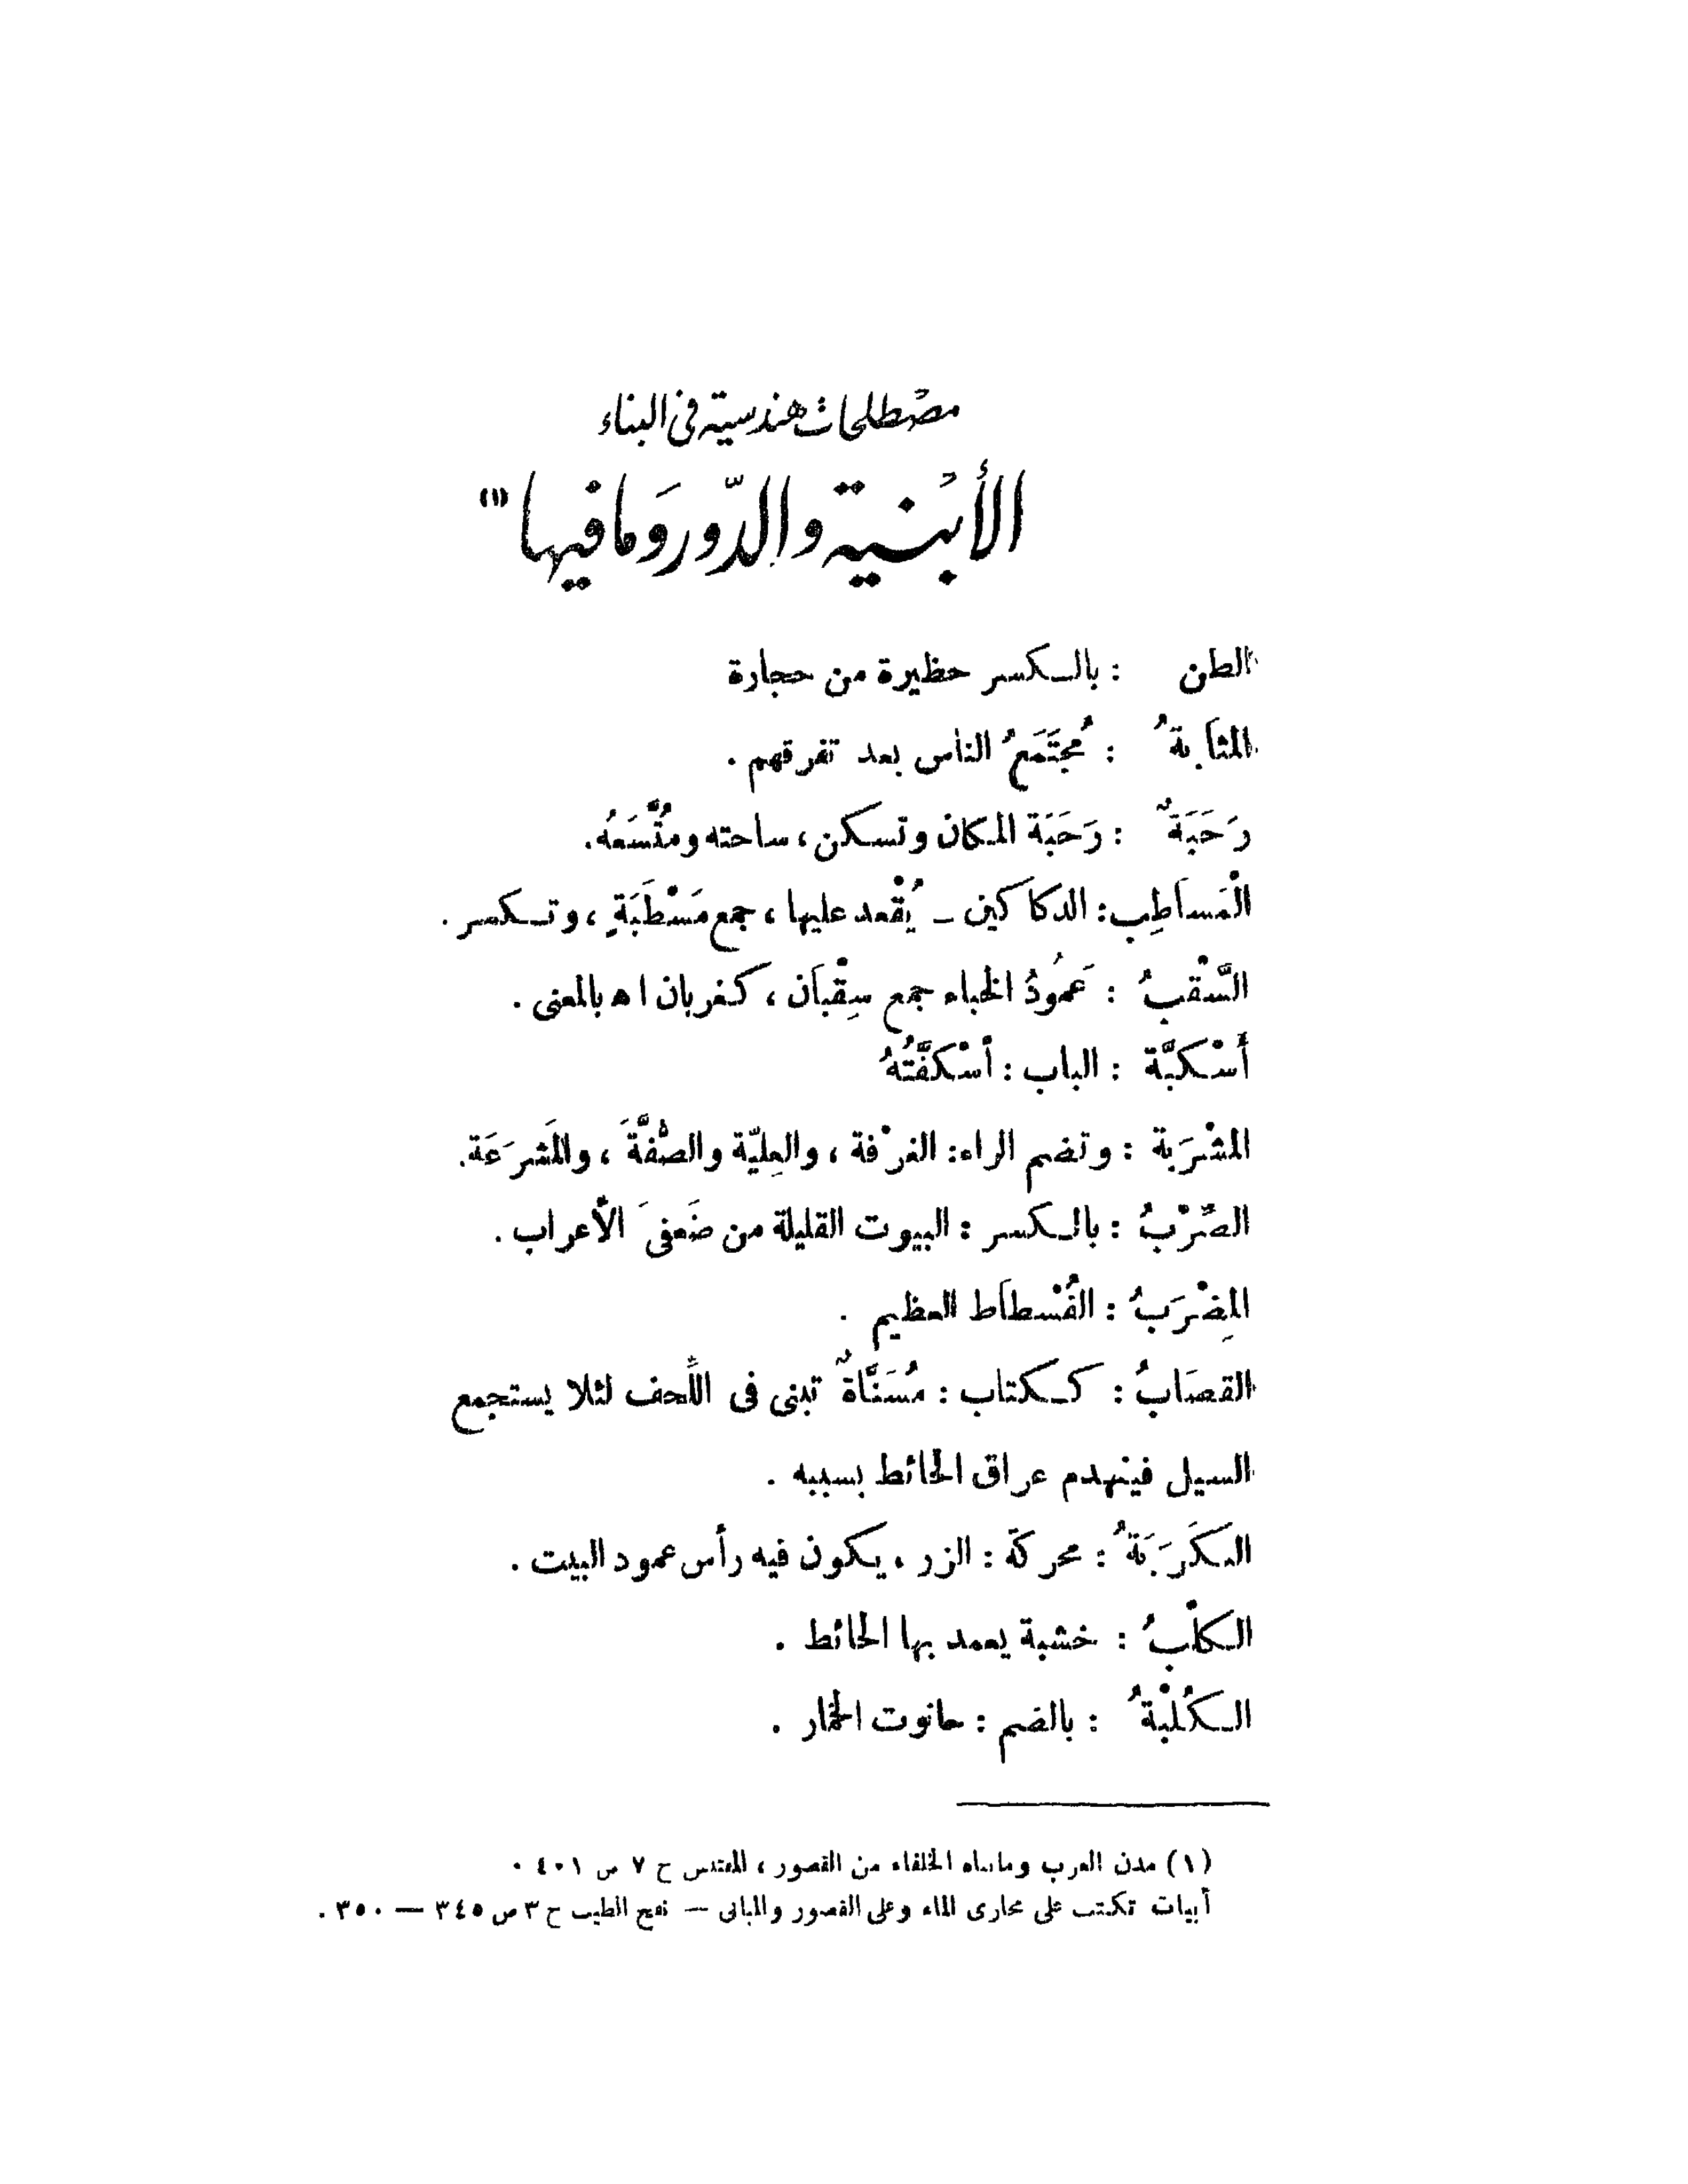 مصطلحات هندسية في البناء
الأبنية والدّور وَما فيها (١)
الطن : بالكسر حظيرة من حجارة
المثاَبةُ : مُجتَمَعُ الناس بعد تفرقهم .
رَحَبَةٌ : رَحَبَة المكان وتسكن ، ساحته ومُتَّسَعُه .
الْمَساَطِب : الدكاكين – يُقْعد عليها ، جمع مَسْطَبَةٍ ، وتكسر .
السَّقْبُ : عَمُودُ الخباء جمع سِقْباَن ، كغربان اه بالمعنى .
أَسْكبَّة : الباب : أسْكفَّتُهُ
المشْرَبة : وتضم الراء : الغرْفة ، والعِليّة والصُّفَّةَ ، والمَشرَعَة .
الصِّرْبُ : بالكسر : البيوت القليلة من ضَعفىَ الأعراب .
المِضْرَبُ : الفُسْطاَط العظيم .
القصَابُ : ككتاب : مُسَنَّاةٌ تبنى فى اللَّحف لئلا يستجمع
السيل فينهدم عراق الحائط بسببه .
الكَرَبَةُ : محركة : الزر ، يكون فيه رأس عمود البيت .
الكلْبُ : خشبة يعمد بها الحائط .
الكُلْبةُ : بالضم : حانوت الخمار .
(١) مدن العرب وما بناه الخلفاء من القصور ، المقتبس ح ٧ ص ٤٠١ .
أبيات تكتب على مجارى الماء وعلى القصور والمبانى — نفح الطيب ح ٣ ص ٣٤٥ — ٣٥٠ .